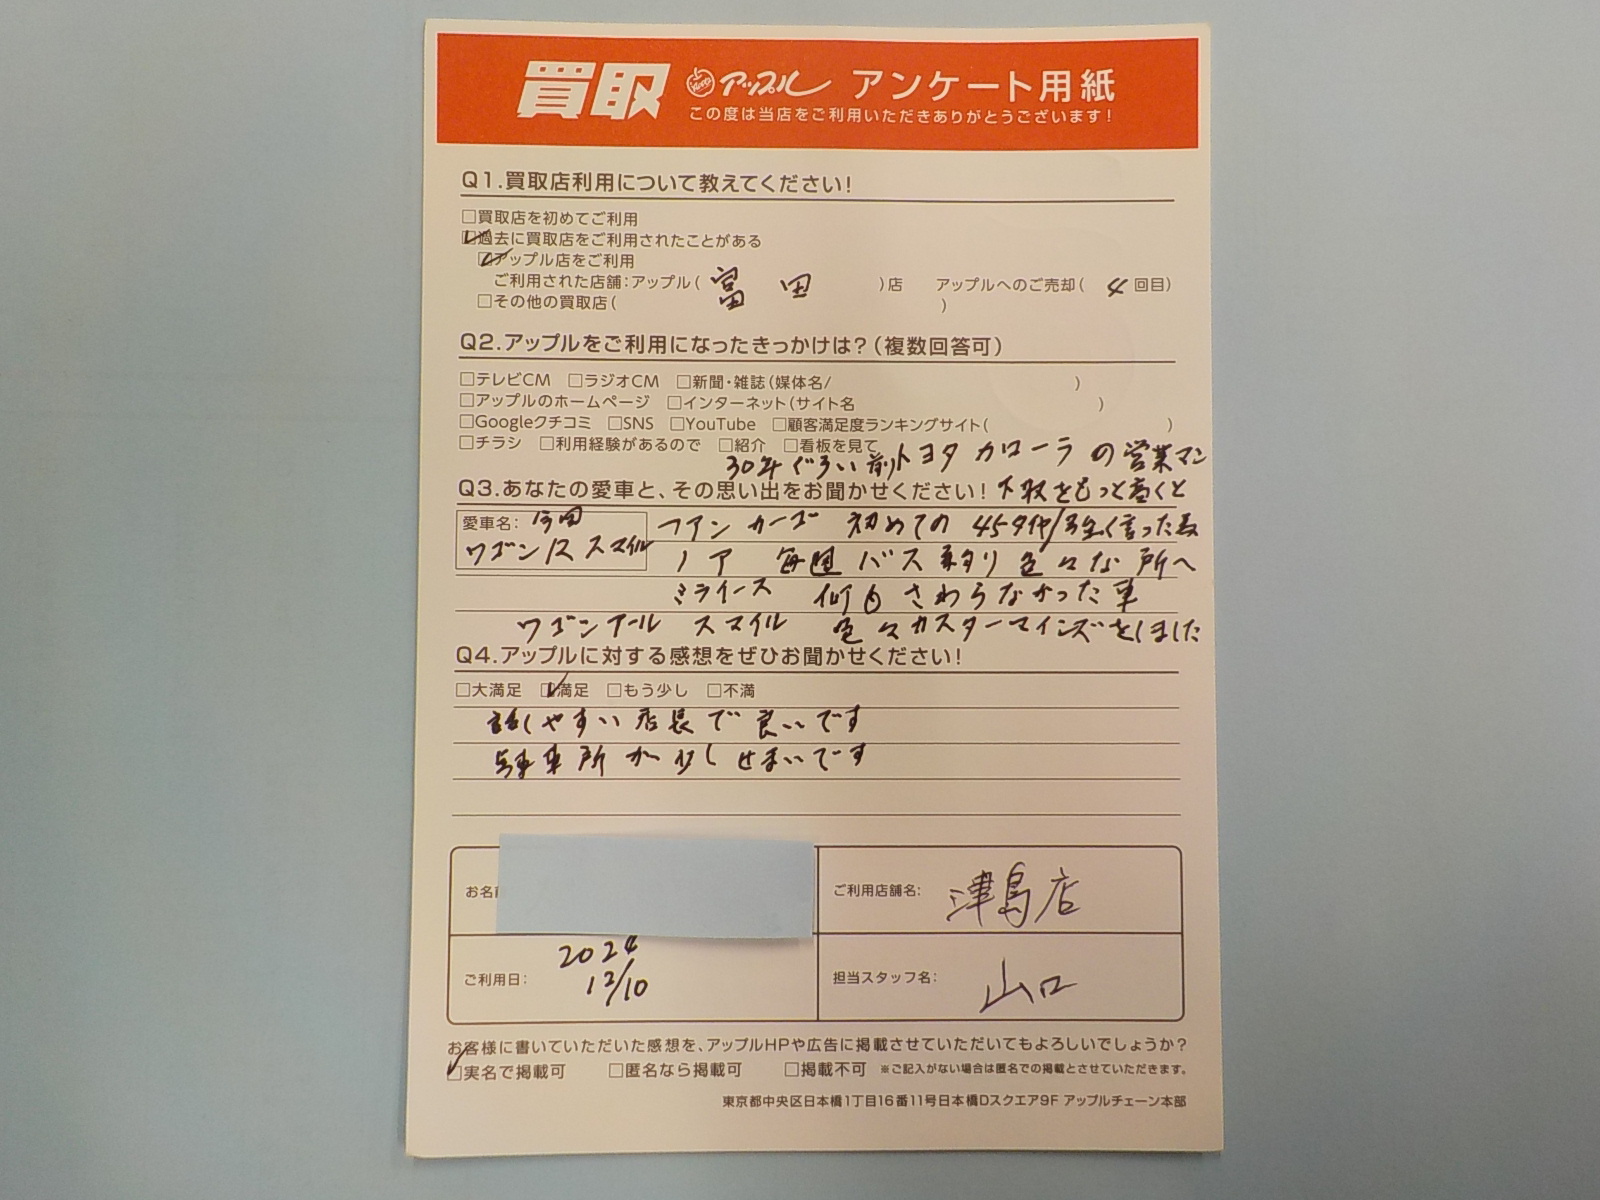 買取 アップル アンケート用紙
この度は当店をご利用いただきありがとうございます!
Q1.買取店利用について教えてください!
□買取店を初めてご利用
☑過去に買取店をご利用されたことがある
☑アップル店をご利用
ご利用された店舗:アップル( 富田 )店 アップルへのご売却( 4 回目)
□その他の買取店( )
Q2.アップルをご利用になったきっかけは?(複数回答可)
□テレビCM □ラジオCM □新聞・雑誌(媒体名/ )
□アップルのホームページ □インターネット(サイト名 )
□Googleクチコミ □SNS □YouTube □顧客満足度ランキングサイト( )
□チラシ □利用経験があるので □紹介 □看板を見て
30年ぐらい前トヨタ カローラ の営業マン
Q3.あなたの愛車と、その思い出をお聞かせください! 下取をもっと高くと
愛車名: 今回 ファンカーゴ 初めての 45タイヤ/強く言った為
ワゴンR スマイル ノア 毎週 バス釣り 色々な所へ
ミライース 何もさわらなかった車
ワゴンアール スマイル 色々カスターマインズをしました
Q4.アップルに対する感想をぜひお聞かせください!
□大満足 ☑満足 □もう少し □不満
話しやすい店長で良いです
駐車所が少しせまいです
ご利用店舗名: 津島店
ご利用日: 2024 12/10
担当スタッフ名: 山口
お客様に書いていただいた感想を、アップルHPや広告に掲載させていただいてもよろしいでしょうか?
☑実名で掲載可 □匿名なら掲載可 □掲載不可 ※ご記入がない場合は匿名での掲載とさせていただきます。
東京都中央区日本橋1丁目16番11号日本橋Dスクエア9F アップルチェーン本部